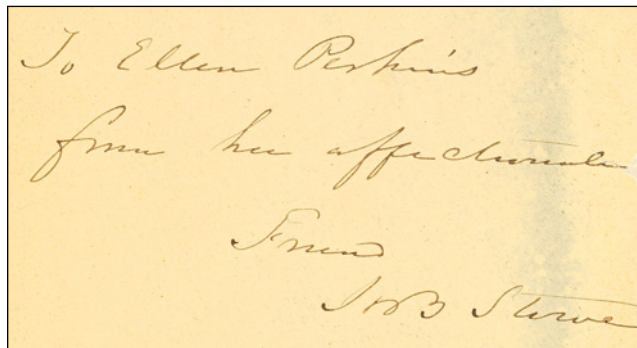 To Ellen Perkins
from her affectionate
Friend
H B Stowe